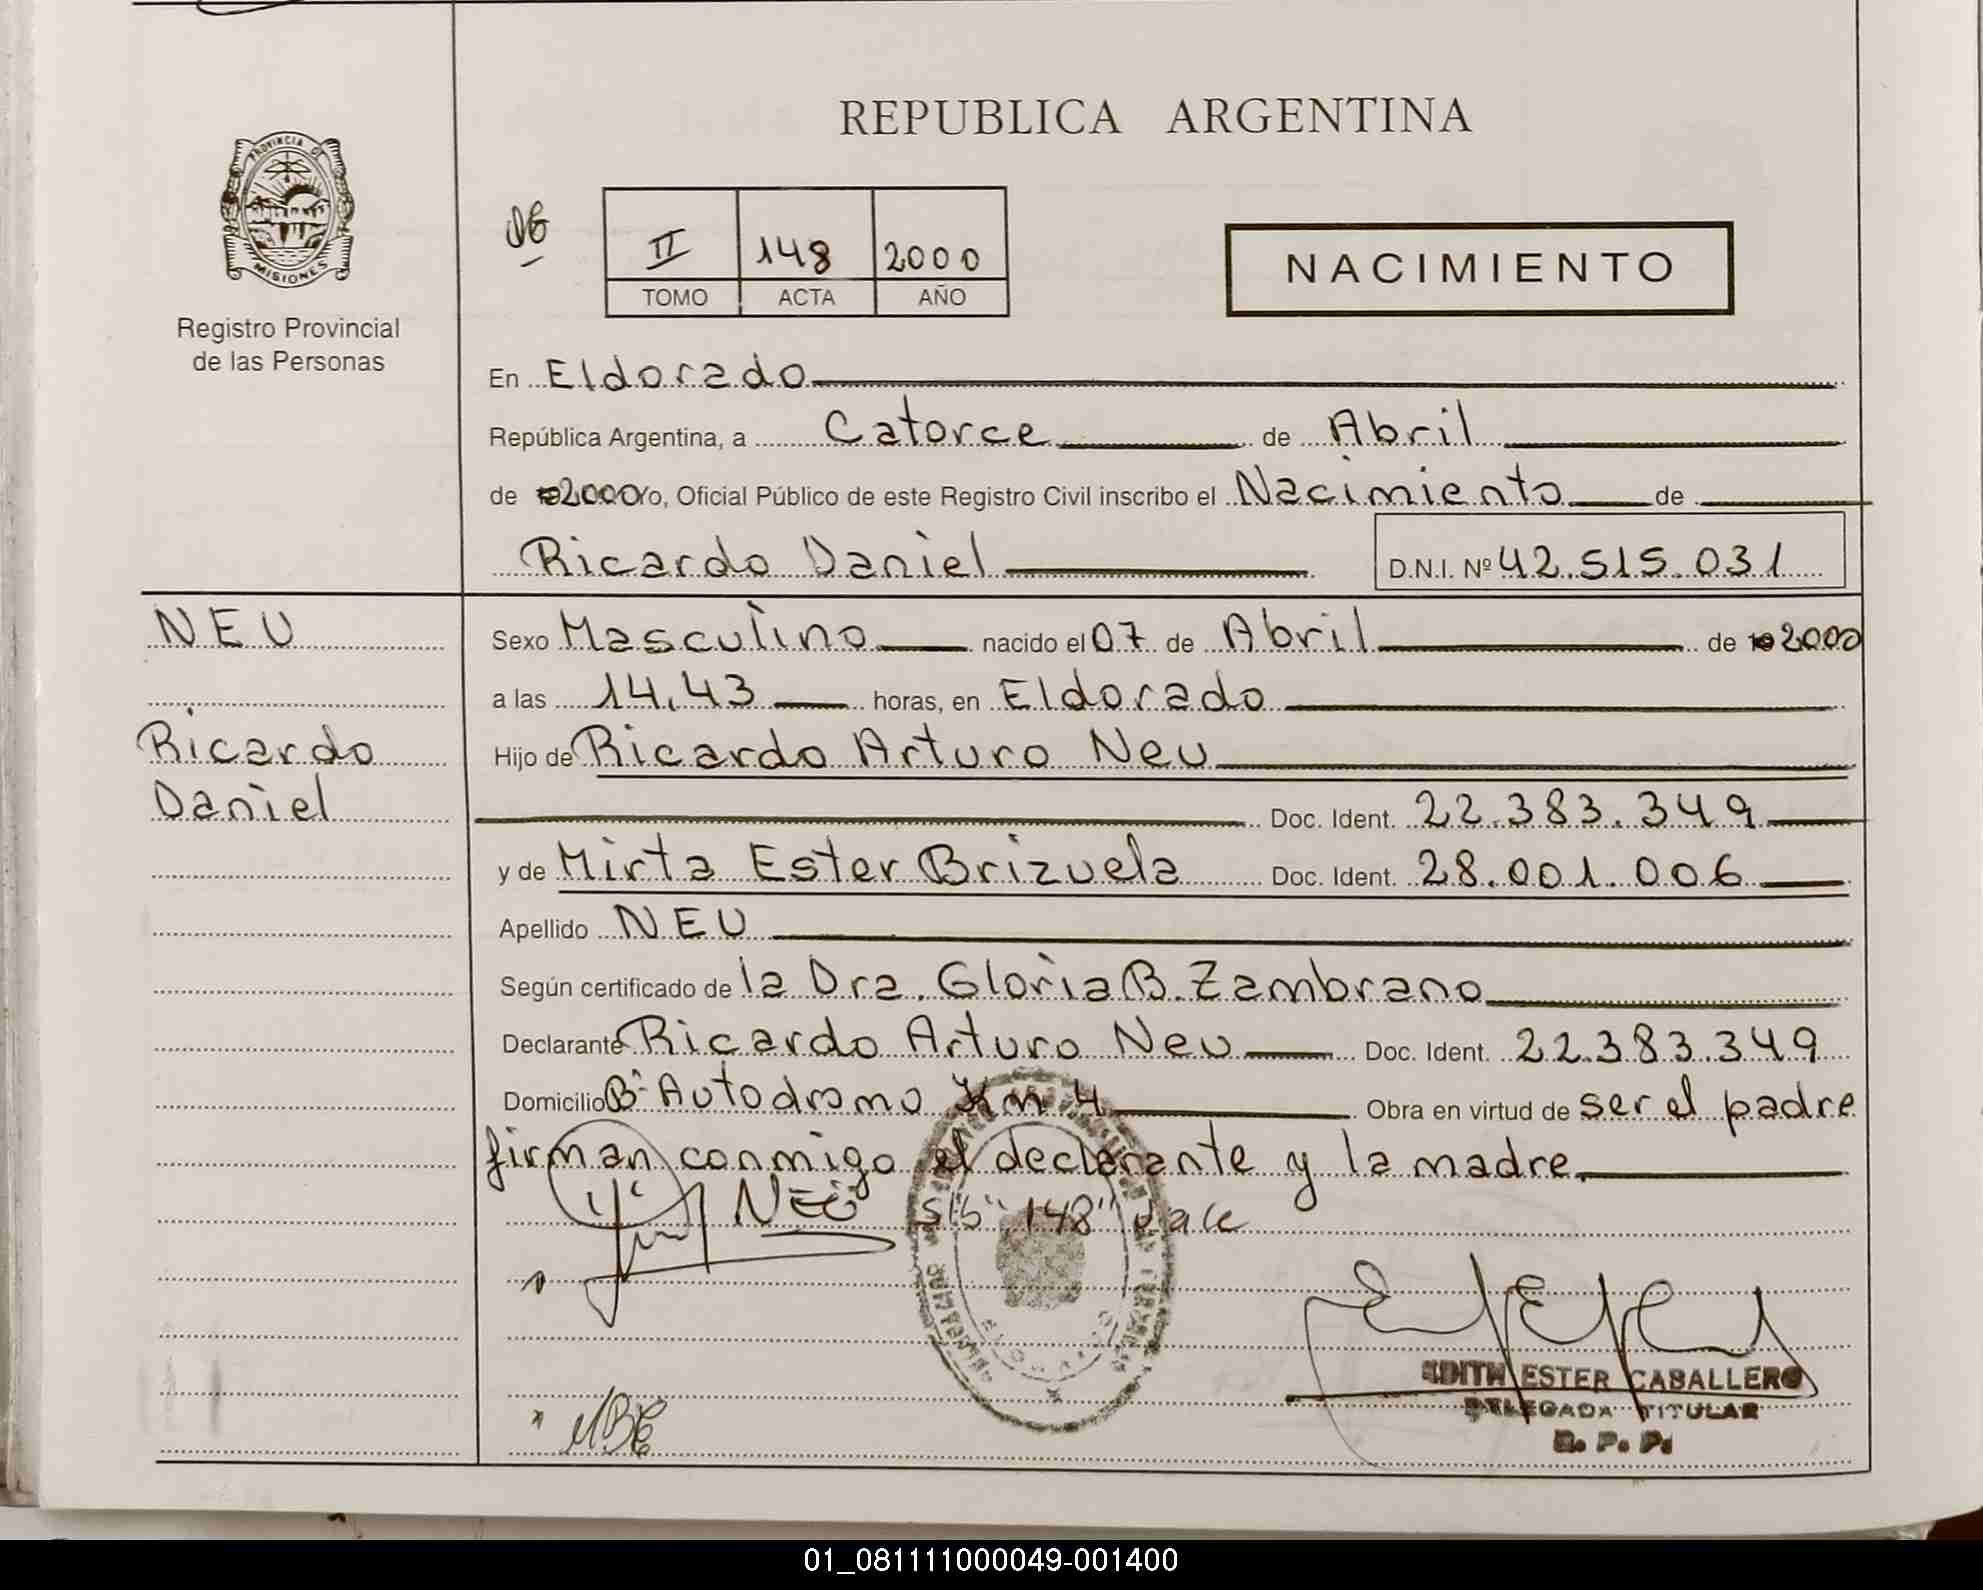 REPUBLICA ARGENTINA
PROVINCIA DE
MISIONES
Registro Provincial
de las Personas
II 148 2000
TOMO ACTA AÑO
NACIMIENTO
En Eldorado
República Argentina, a Catorce de Abril
de 2000 Yo, Oficial Público de este Registro Civil inscribo el Nacimiento de
Ricardo Daniel D.N.I. Nº 42.515.031
NEU
Ricardo
Daniel
Sexo Masculino nacido el 07 de Abril de 2000
a las 14,43 horas, en Eldorado
Hijo de Ricardo Arturo Neu
Doc. Ident. 22.383.349
y de Mirta Ester Brizuela Doc. Ident. 28.001.006
Apellido NEU
Según certificado de la Dra. Gloria B. Zambrano
Declarante Ricardo Arturo Neu Doc. Ident. 22.383.349
Domicilio Bº Autodromo Km 4 Obra en virtud de ser el padre
firman conmigo el declarante y la madre.
NEU S/b "148" Vale
EDITH ESTER CABALLERO
DELEGADA TITULAR
R. P. P.
MBE
01_081111000049-001400